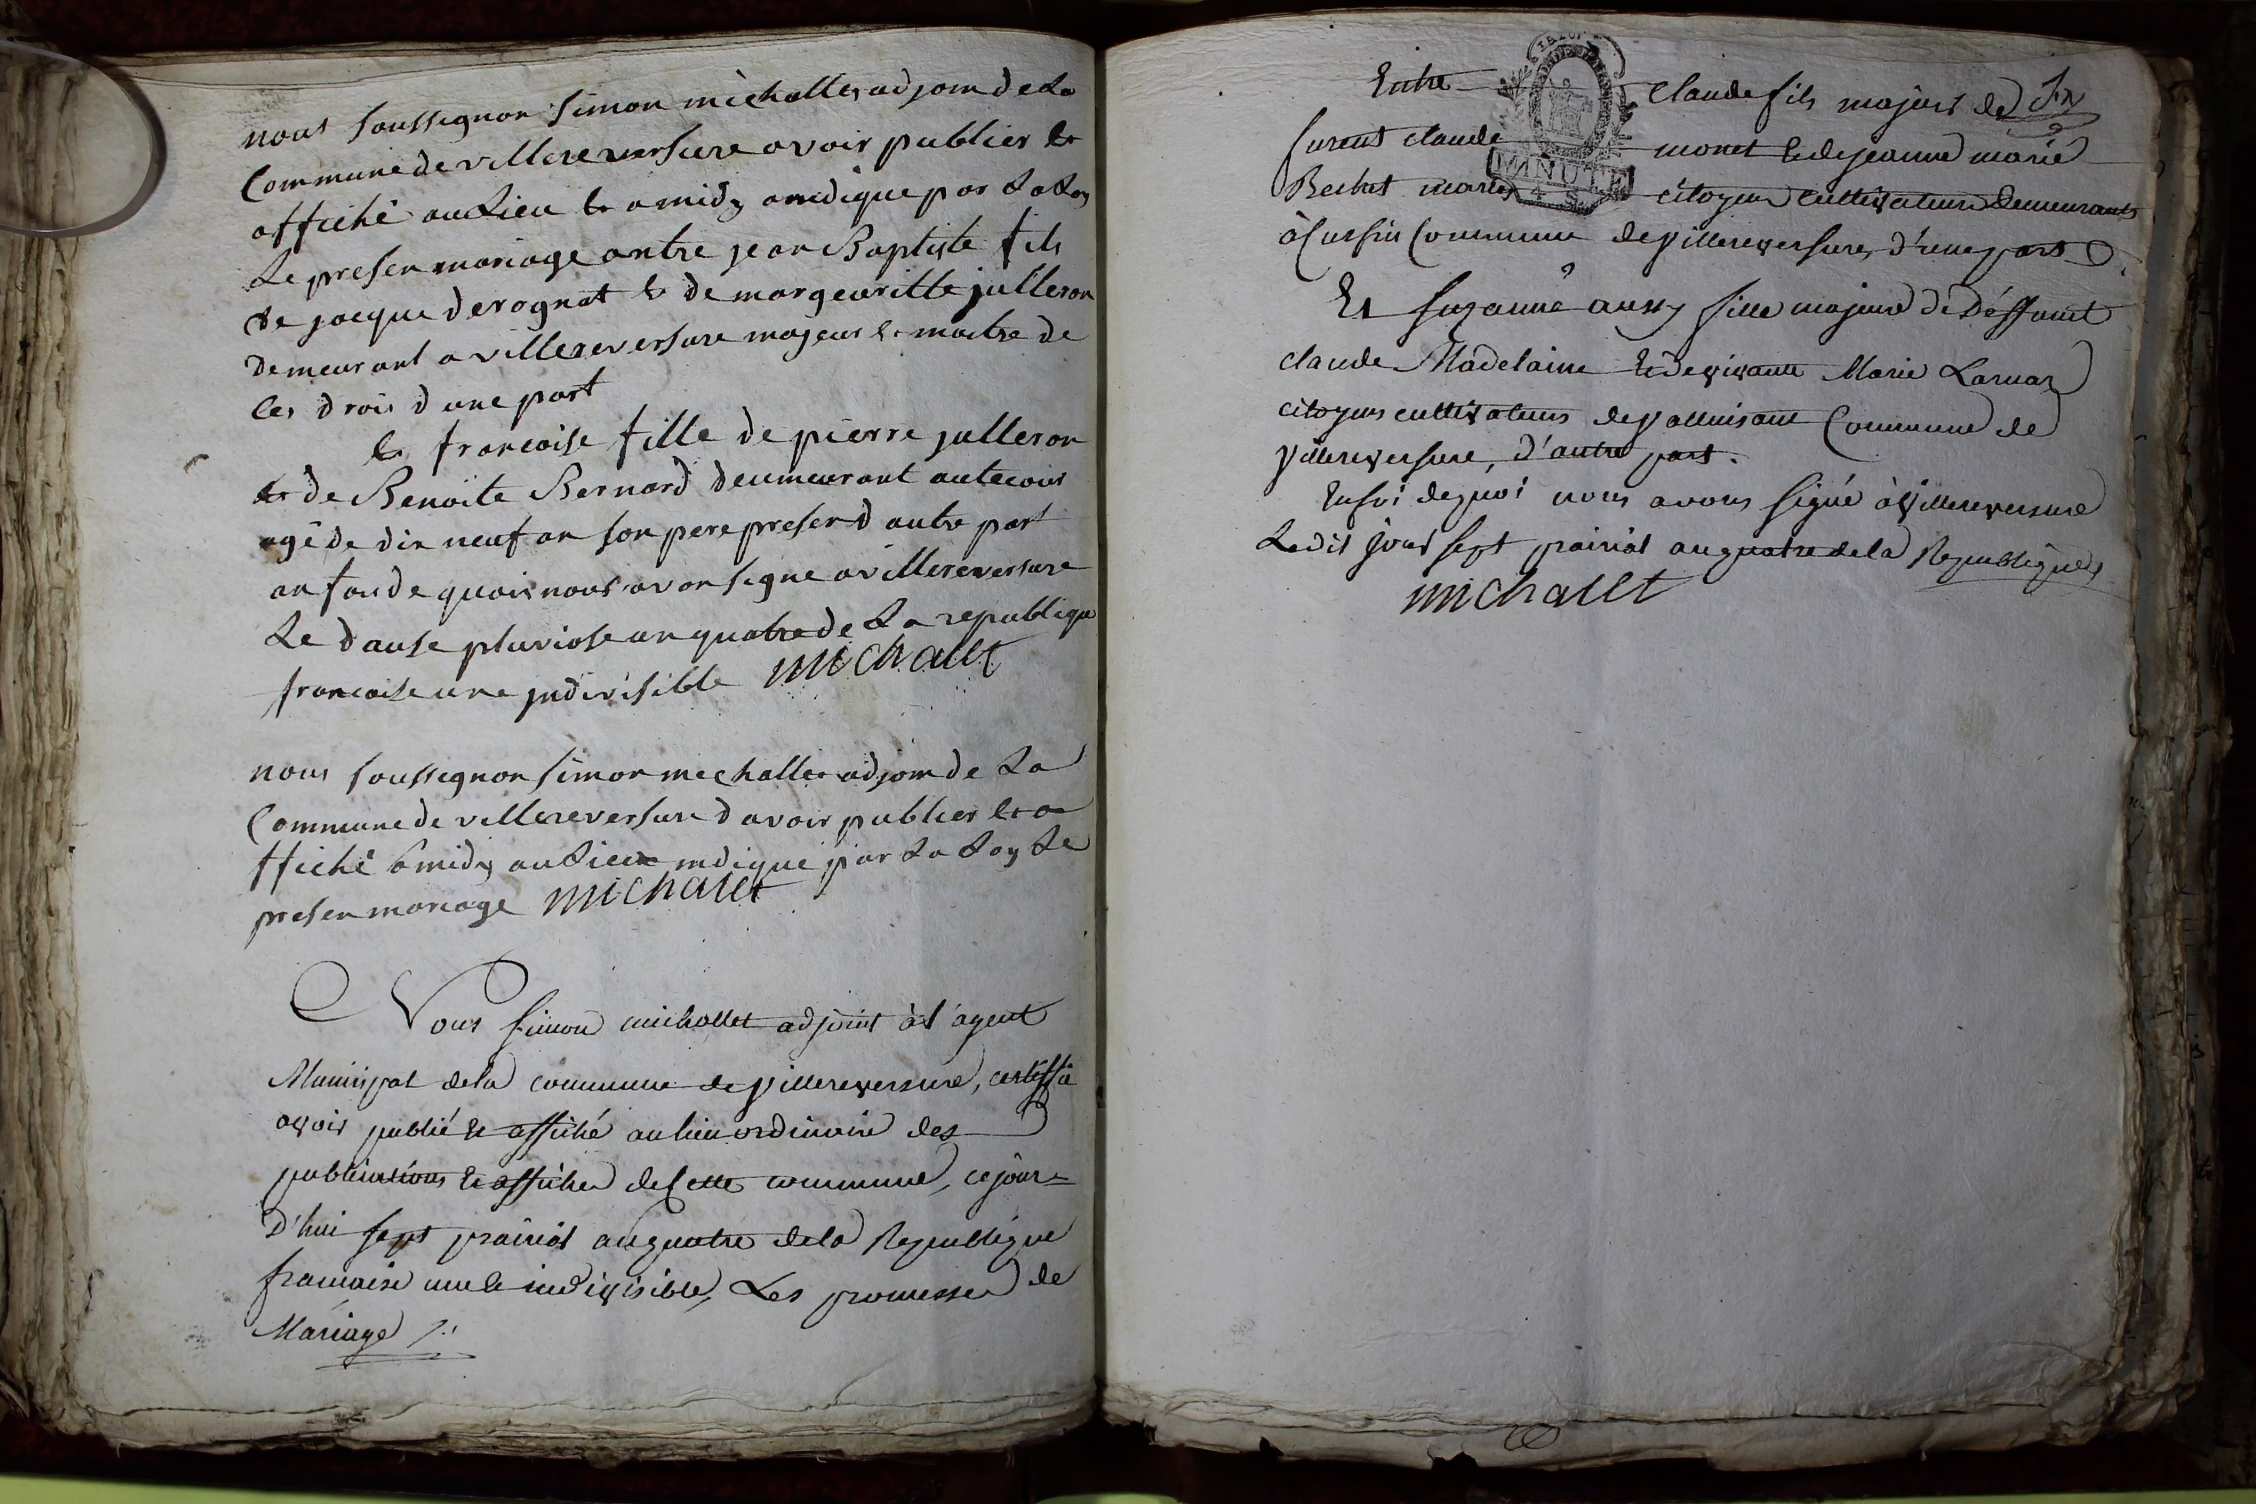 nous soussignon simon michallet adjoin de La
Commune de villereversure avoir publier et
affiché au Lieu et a midy andique par La Loy
Le presen mariage antre jean Baptiste fils
de jacque derognat et de margeuritte julleron
demeurant a villereversure mageur et maitre de
ces drois dune part
et francoise fille de pierre julleron
et de Benoite Bernard deumeurant au
agé de dix neuf an son pere presen d autre part
an foi de quoi nous avon signe a villereversure
Le dause pluviose an quatre de La republique
francoise une jndivisible michallet
nous soussignon simon michallet adjoin de La
Commune de villereversure d avoir publier et a
ffiché a midy au Lieu indique par La Loy Le
presen mariage michallet
Nous simon michallet adjoint à l'agent
Municipal de la commune de villereversure, certiffie
avoir publié et affiché au lieu ordinaire des
publications et affiches de Cette commune, ce jour=
D'hui sept prairial an quatre de la Republique
francaise une et indivisible, Les promesses de
Mariage
Entre Claude fils majeur de
furent claude monet et de jeanne marie
Bechet mariés citoyens cultivateurs demeurants
à Cursin Commune de villereversure, d'une part
Et suzanne aussy fille majeure de Déffunt
claude Madelaine et de vivante Marie Larnaz
citoyens cultivateurs de valluisant Commune de
villereversure, d'autre part.
En foi de quoi nous avons signé à villereversure
Ledit jour sept prairial an quatre de la Republique
michallet
MINUTE
4 S.